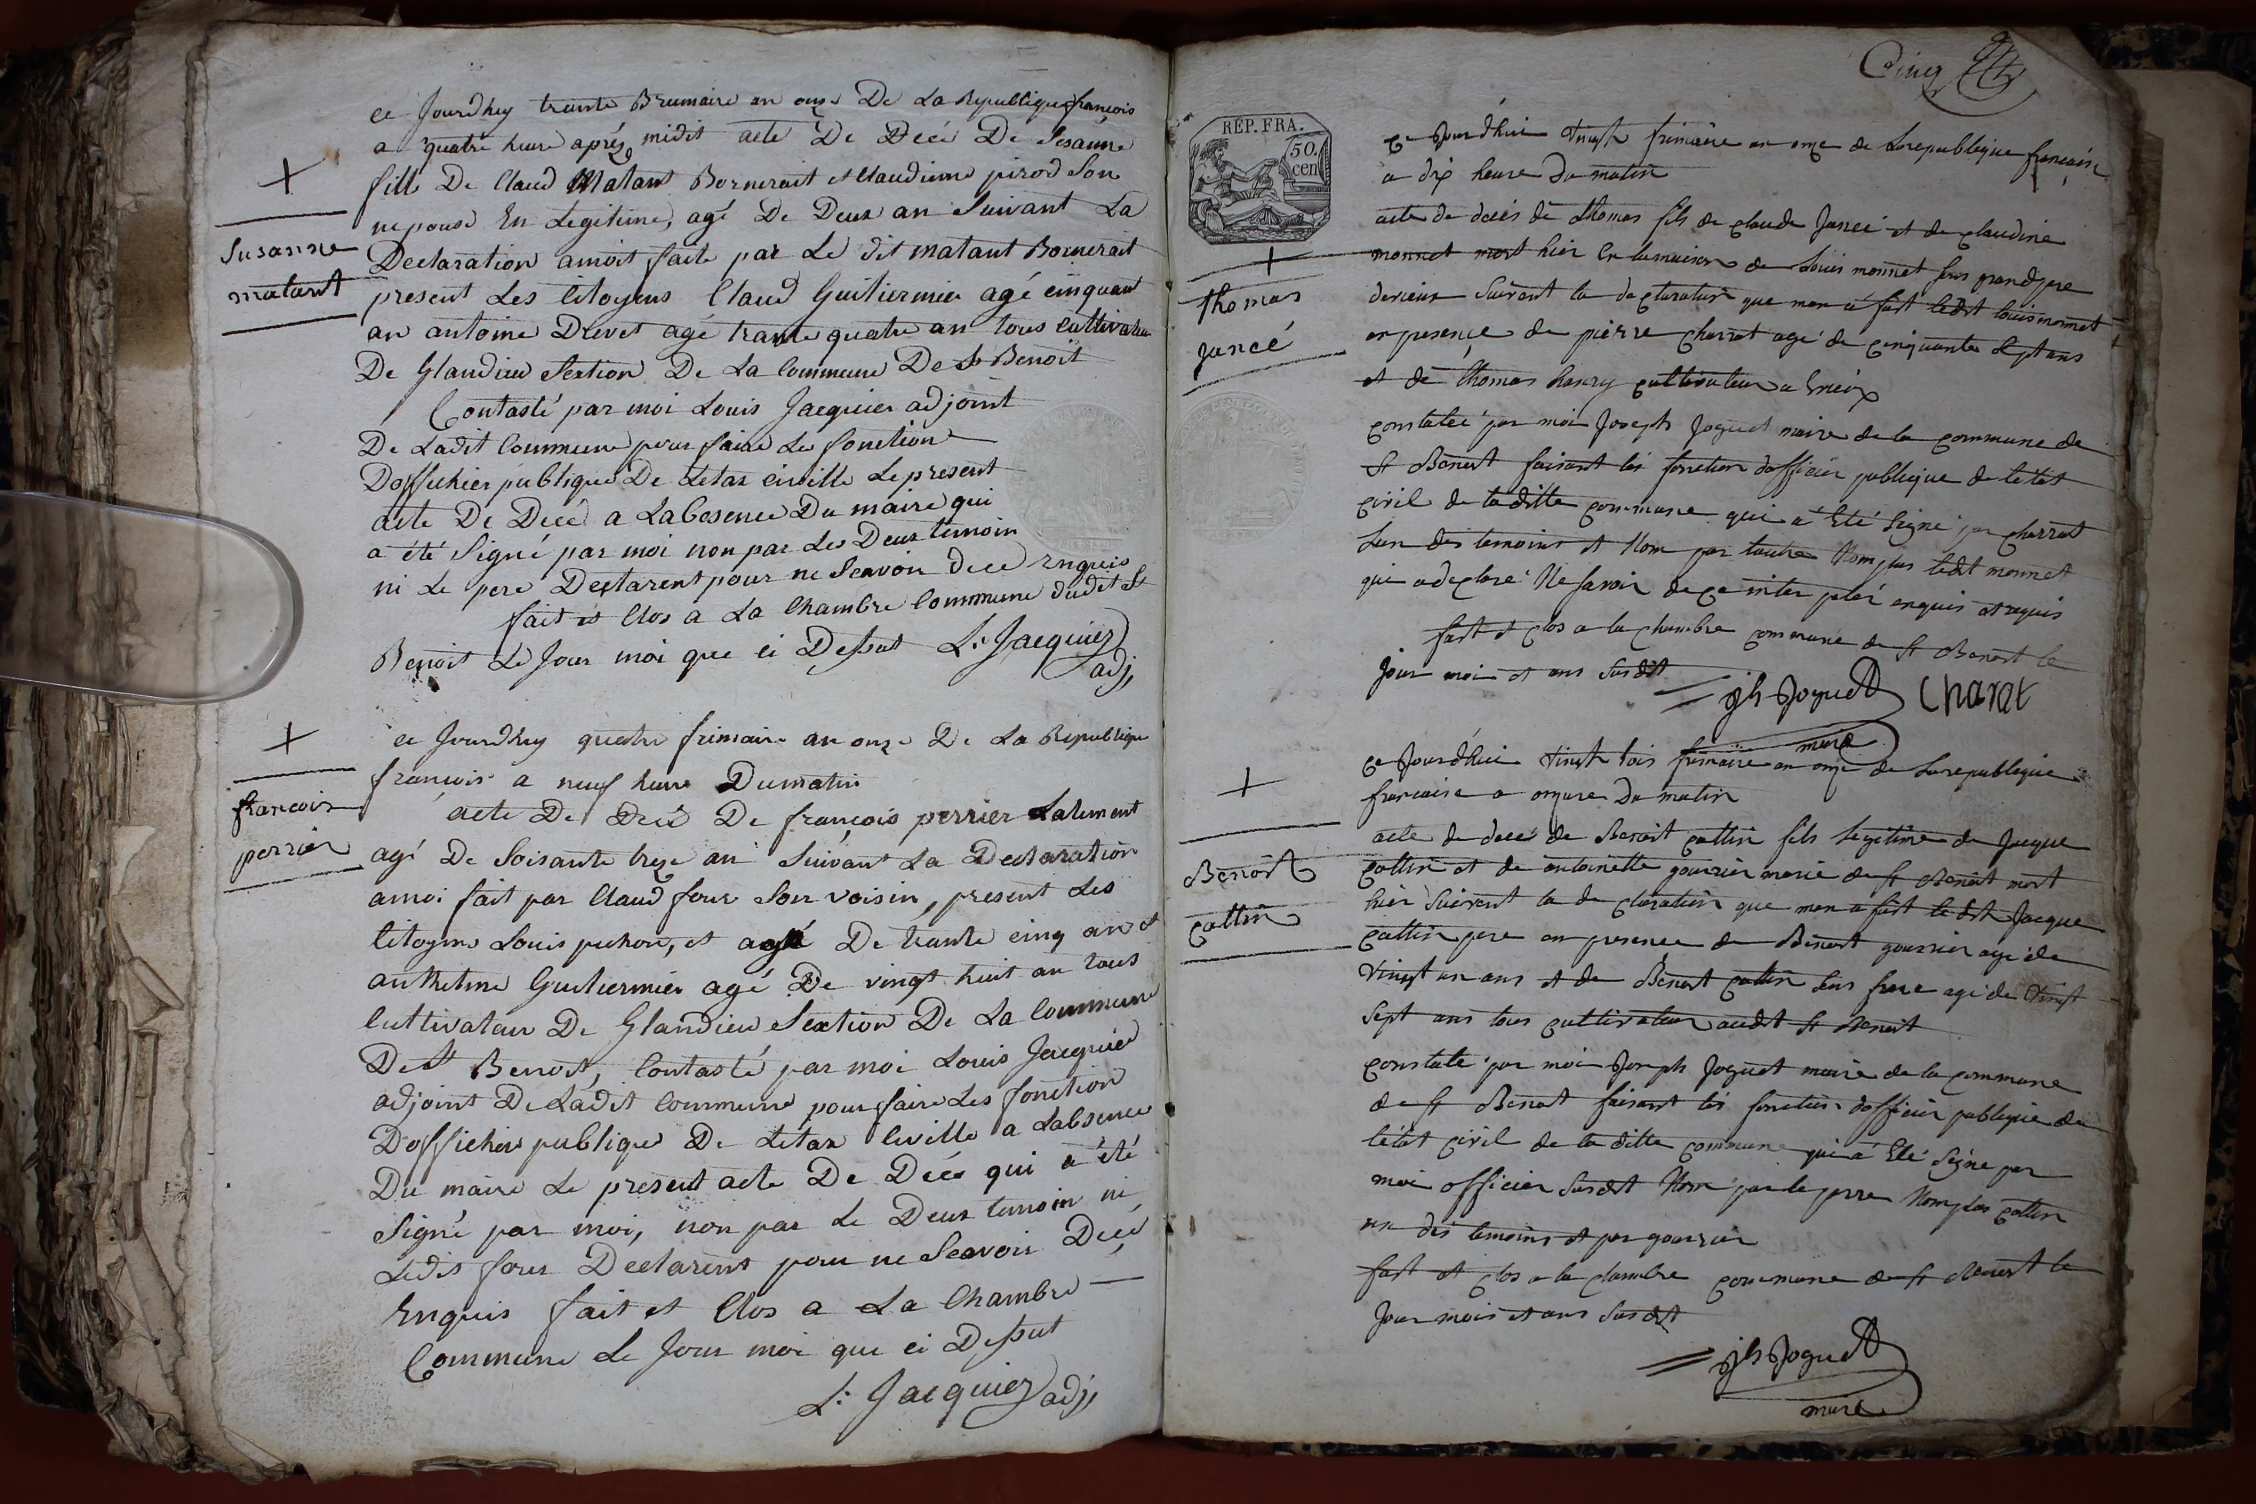 ce Jourdhuy trante Brumaire an onze De La Republique françois
a quatré heure aprés midit acte De Decé De Susanne
fille De Claud Matant Bornerait et Claudine pirod Son
ne pouse En Legitime, agé De Deux an Suivant La
Declaration amoit faite par Le dit matant Bornerait
present Les Citoyens Claud Guiliermier agé cinquan
an antoine Drevet agé trante quatre an tous Cultivateu
De Glandieu Section De La Commune De St Benoit
Contasté par moi Louis Jacquier adjoint
De Ladit Commune pour faire Les fonction
Doffichier publique De Letax civille Le present
acte De Decé a Labcsence Du maire qui
a été Signé par moi non par Les Deux temoin
ni Le pere Declarent pour ne Scavoir dece Enquis
fait et Clos a La Chambre Commune dudit St
Benoit Le Jour moi que ci Dessut L. Jacquier
adj,
Susanne
matant
ce Jourdhuy quatre frimaire an onze De La Republique
françois a neuf heure Dumatin
acte De Decé De françois perrier Lalement
agé De Soisante treze an Suivant La Declaration
amoi fait par Claud four Son voisin, present Les
Citoyens Louis pichon, et agé De trante cinq an et
anthelme Guiliermier agé De vingt huit an tous
Cultivateur De Glandieu Section De La Commune
De St Benoit, Contasté par moi Louis Jacquier
adjoint De Ladit Commune pour faire Les fonction
Doffichier publique De Letax Civille a Labsence
Du maire Le present acte De Décé qui a été
Signé par moi, non par Le Deux temoin ni
Ledit four Declarent pour ne Scavoir Decé
Enquis fait et Clos a La Chambre
Commune Le Jour moi que ci Dessut
L. Jacquier adj,
francois
perrier
Cinq
REP. FRA.
50.
cen
ce Jourd'hui vingt frimaire an onze de La republique françaisse
a dix heure du matin
acte de decés de thomas fils de claude Jancé et de claudine
monnet mort hier En la maison de Louis monnet Son grandpere
derieux Suivant la declaration que mon a fait ledit louis monnet
en presençe de pierre charrat agé de cinquante Sept ans
et de thomas henry cultivateur a
constateé par moi Joseph Joguet maire de la commune de
St Benoit faisant les fonction dofficier publique de létat
civil de ladite commune qui a Eté Signe par charrat
Lun des temoins et Non par lautre Nomplus ledit monnet
qui a declaré Ne Savoir de ce inter pelé enquis et requis
fait et clos a la chambre commune de St Benoit le
Jour mois et ans Susdit
jh Joguet Charat
maire
thomas
jancé
ce Jourd'hui vingt tois frimaire an onze de La republique
francaise a onzure Du matin
acte de decé de Benoit cottin fils legitime de Jacque
cottin et de antoinette gourrier marié de St Benoit mort
hier Suivant la de claration que mon a fait ledit Jacque
cottin pere en presence de Benoit gourrier age de
vingt un ans et de Benoit cottin Son frere agé de vingt
Sept ans tous cultivateur audit St Benoit
constaté par moi Joseph Joguet maire de la commune
de St Benoit faisant les fonction dofficier publique de
létat civil de la ditte commune qui a Eté Signe par
moi officier Susdit Non par le perre Nomplus cottin
un des temoins et par gourrier
fait et clos a la chambre commune de St Benoit le
Jour mois et ans Susdit
jh Joguet
maire
Benoit
cottin